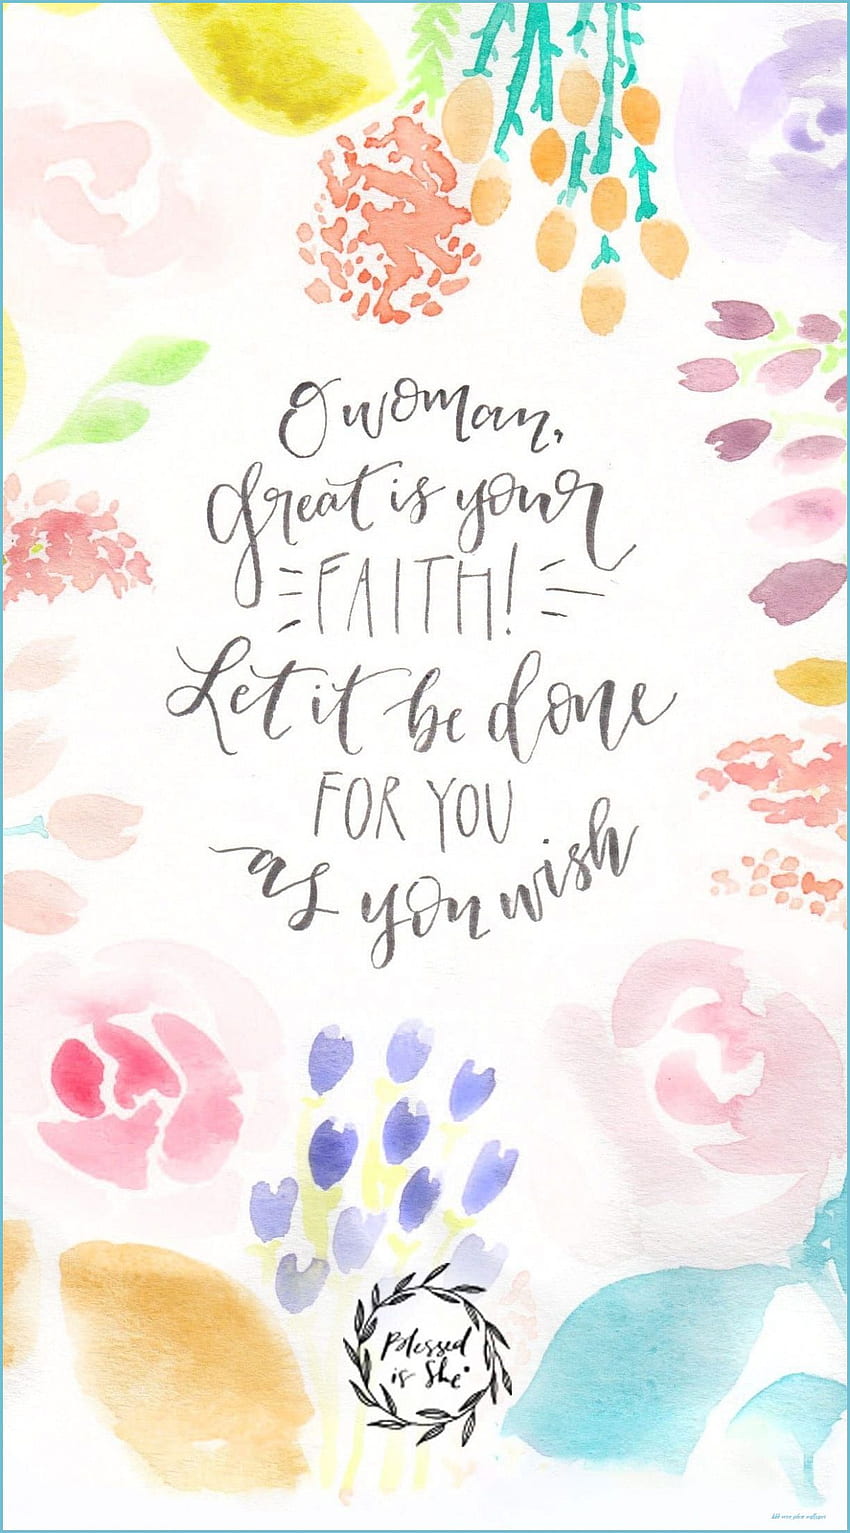 O woman,
Great is your
FAITH!
Let it be done
FOR YOU
as you wish
Blessed
is She